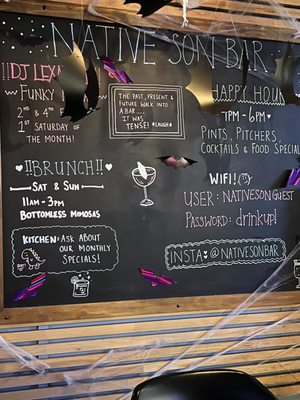 NATIVE SON BAR
!!DJ LEX
FUNKY
2nd & 4th
1st SATURDAY
OF THE MONTH!
THE PAST, PRESENT &
FUTURE WALK INTO
A BAR......
IT WAS
TENSE! #LAUGH
HAPPY HOU
7PM - 6PM
PINTS, PITCHERS,
COCKTAILS & FOOD SPECIA
!!BRUNCH!!
SAT & SUN
11AM - 3PM
BOTTOMLESS MIMOSAS
WIFI!
USER: NATIVESON GUEST
PASSWORD: drinkup!
KITCHEN: ASK ABOUT
OUR MONTHLY
SPECIALS!
INSTA: @NATIVESONBAR